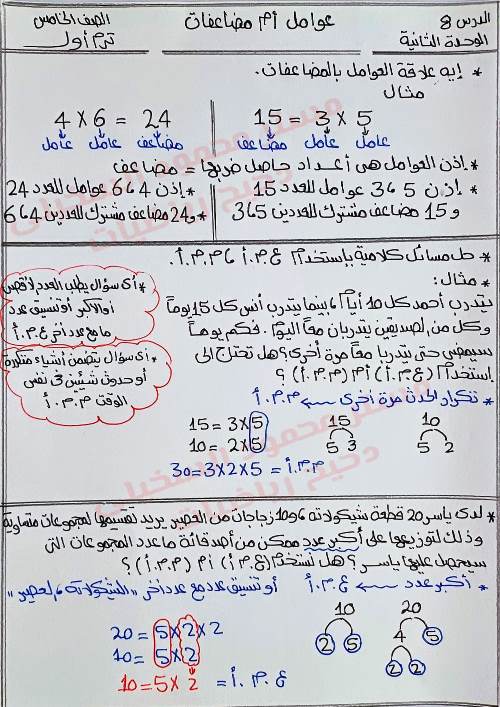 الدرس 8
الوحدة الثانية
عوامل أم مضاعفات
الصف الخامس
ترم أول
* إيه علاقة العوامل بالمضاعفات.
مثال
15 = 3 × 5
مضاعف عامل عامل
4 × 6 = 24
عامل عامل مضاعف
* إذن العوامل هى أعداد حاصل ضربها = مضاعف
* إذن 5 6 3 عوامل للعدد 15
و 15 مضاعف مشترك للعددين 3 6 5
* إذن 4 6 6 عوامل للعدد 24
* و 24 مضاعف مشترك للعددين 4 6 6
* حل مسائل كلامية بإستخدام ع.م.أ 6 م.م.أ.
* مثال:
يتدرب أحمد كل 10 أيام 6 بينما يتدرب أنس كل 15 يوماً
وكل من الصديقين يتدربان معاً اليوم. فكم يوماً
سيمضى حتى يتدربا معاً مرة أخرى؟ هل تحتاج الى
إستخدام (ع.م.أ) أم (م.م.أ) ؟
* أى سؤال يطلب العدد الأقصى
أو الأكبر أو تنسيق عدد
ما مع عدد آخر ع.م.أ
* أى سؤال يتضمن أشياء متكررة
أو حدوث شيئين فى نفس
الوقت م.م.أ
* تكرار الحدث مرة أخرى ← م.م.أ
15 = 3 × 5
10 = 2 × 5
م.م.أ = 30 = 3 × 2 × 5
15
5 3
10
5 2
* لدى ياسر 20 قطعة شيكولاته 6 و 10 زجاجات من العصير يريد تقسيمها لمجموعات متساوية
وذلك لتوزيعها على أكبر عدد ممكن من أصدقائة ما عدد المجموعات التى
سيحصل عليها ياسر؟ هل نستخدم (ع.م.أ) أم (م.م.أ) ؟
* أكبر عدد ← ع.م.أ أو تنسيق عدد مع عدد آخر "الشيكولاته 6 العصير"
20 = 5 × 2 × 2
10 = 5 × 2
ع.م.أ = 10 = 5 × 2
10
2 5
20
4 5
2 2